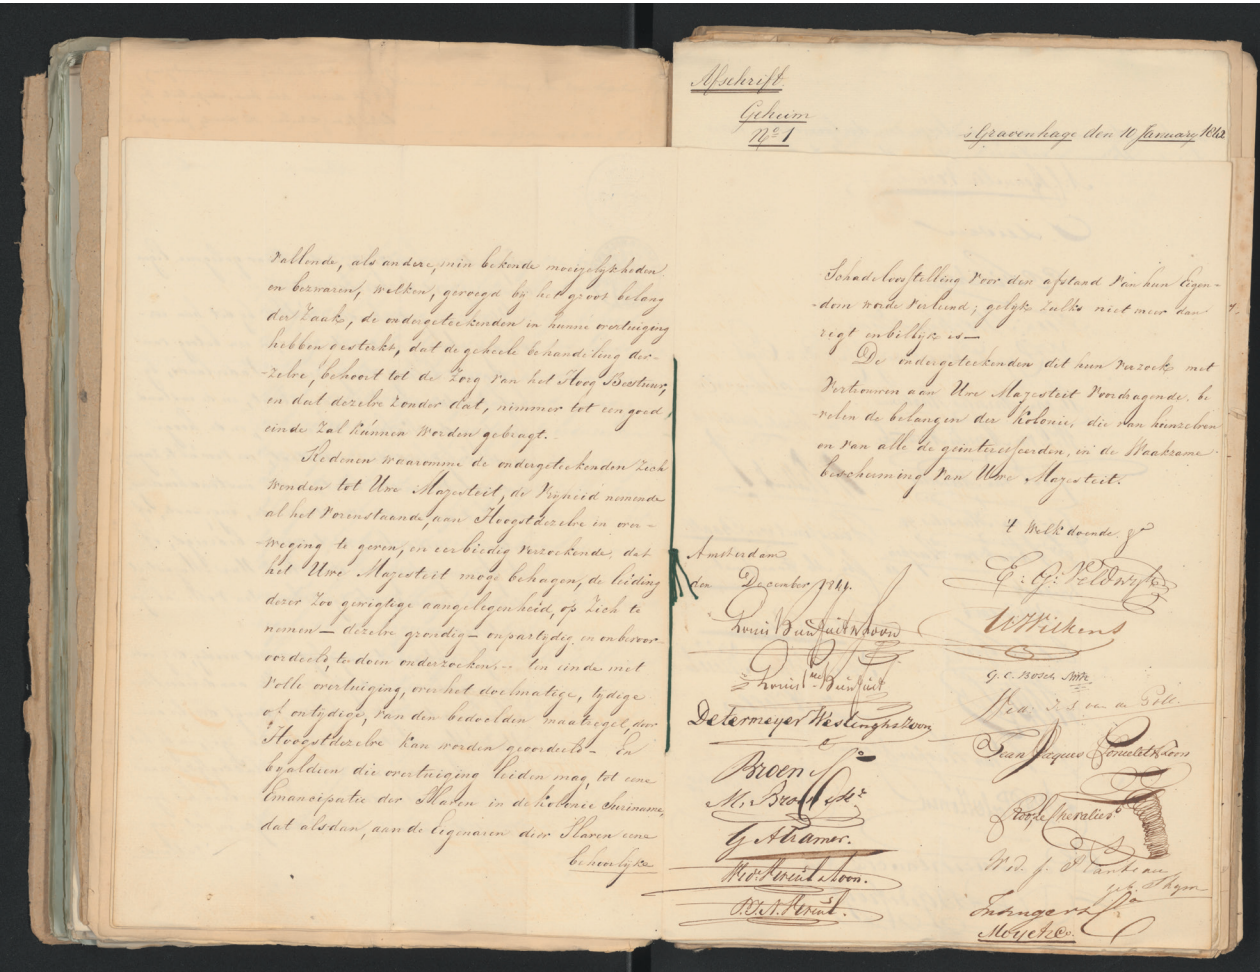 vallende, als andere, min bekende moeijelykheden
en bezwaren, welken, gevoegd by het groot belang
der Zaak, de ondergeteekenden in hunne overtuiging
hebben versterkt, dat de geheele behandeling der-
-zelve, behoort tot de Zorg van het Hoog Bestuur,
en dat dezelve zonder dat, nimmer tot een goed
einde Zal kunnen worden gebragt.
Redenen waaromme de ondergeteekenden Zich
wenden tot Uwe Majesteit, de Vryheid nemende
al het vorenstaande, aan Hoogstdezelve in over-
-weging te geven, en eerbiedig verzoekende, dat
het Uwe Majesteit moge behagen, de leiding
dezer Zoo gewigtige aangelegenheid, op Zich te
nemen — dezelve grondig — onpartydig en onbevoor-
oordeeld, te doen onderzoeken, — ten einde met
volle overtuiging, over het doelmatige, tydige
of ontydige, van den bedoelden maatregel, door
Hoogstdezelve kan worden geoordeeld — En
byaldien die overtuiging leiden mag, tot eene
Emancipatie der Slaven in de Kolonie Suriname,
dat alsdan, aan de Eigenaren dier Slaven eene
behoorlyke
Afschrift
Geheim
No 1
's Gravenhage den 10 January 1842
Schadeloosstelling voor den afstand van hun Eigen-
-dom worde verleend; gelyk zulks niet meer dan
regt en billyk is —
De ondergeteekenden dit hun verzoek met
vertrouwen aan Uwe Majesteit voordragende, be
-velen de belangen der Kolonie, die van hunzelven
en van alle de geinteresseerden, in de Waakzame
bescherming van Uwe Majesteit.
't Welk doende
Amsterdam
den December 1841.
E: G: Veldwyk
Louis Bienfait &
Wilkens
Louis Bienfait
G. C. Bosch
Wed. J. S van de Poll.
Determeyer Weslingh & Zoon
Jean Jaques & Zoon
Broen
M. Broen
Chevalier
G A Cramer.
Wed. & Zoon.
Wed. J. Planteau
geb. Thym
Insinger & Co
Moyet & Co.